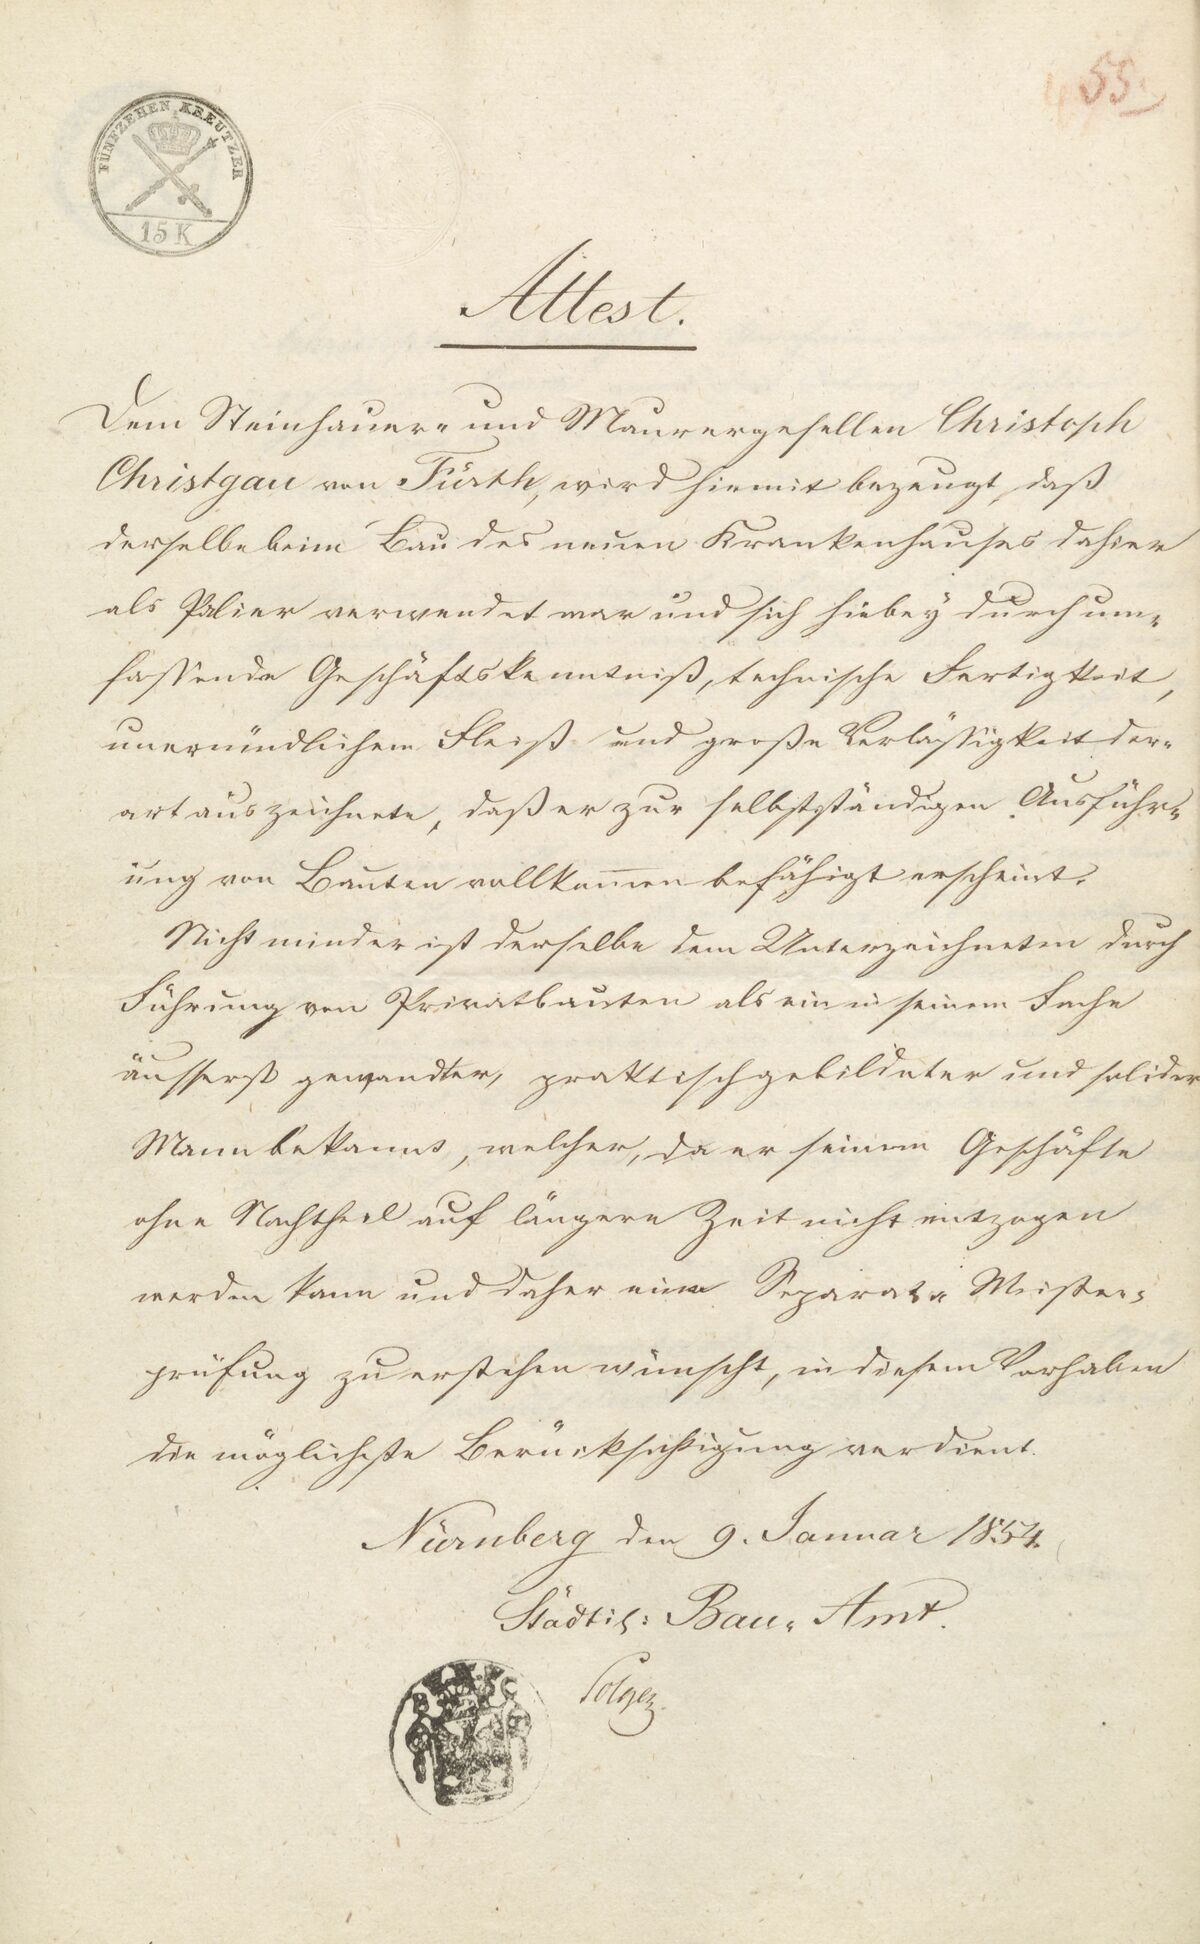 55.
FÜNFZEHEN KREUTZER
15 K
Attest.
Dem Steinhauer- und Maurergesellen Christoph
Christgau von Fürth, wird hiemit bezeugt, daß
derselbe beim Bau des neuen Krankenhauses dahier
als Palier verwendet war und sich hiebey durch um-
fassende Geschäftskenntniß, technische Fertigkeit,
unermüdlichem Fleiß und große Verlässigkeit der-
art auszeichnete, daß er zur selbstständigen Ausführ-
ung von Bauten vollkommen befähigt erscheint.
Nicht minder ist derselbe dem Unterzeichneten durch
Führung von Privatbauten als ein in seinem Fache
äusserst gewandter, praktisch gebildeter und solider
Mann bekannt, welcher, da er seinem Geschäfte
ohne Nachtheil auf längere Zeit nicht entzogen
werden kann und daher eine Separat- Meister-
prüfung zu erstehen wünscht, in diesem Vorhaben
die möglichste Berücksichtigung verdient.
Nürnberg den 9. Januar 1854.
Städtis: Bau- Amt.
Solger